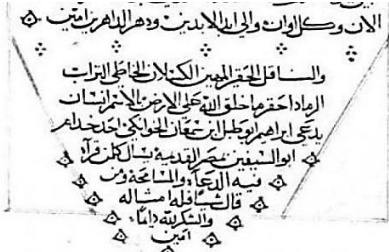 الان وكل اوان والي ابد الابدين ودهر الداهرين امين
والناقل الحقير المهين الكسلان الخاطي التراب
الرماد احقر ما خلق الله علي الارض الاثم انسان
يدعي ابراهيم ابو طبل ابن سمعان الخوانكي احد خدام
ابو السيفين بمصر القديمة يسال كلمن قراه
فيه الدعاء والمسامحة ومن
قال شيا فله امثاله
والشكر لله دايما
امين